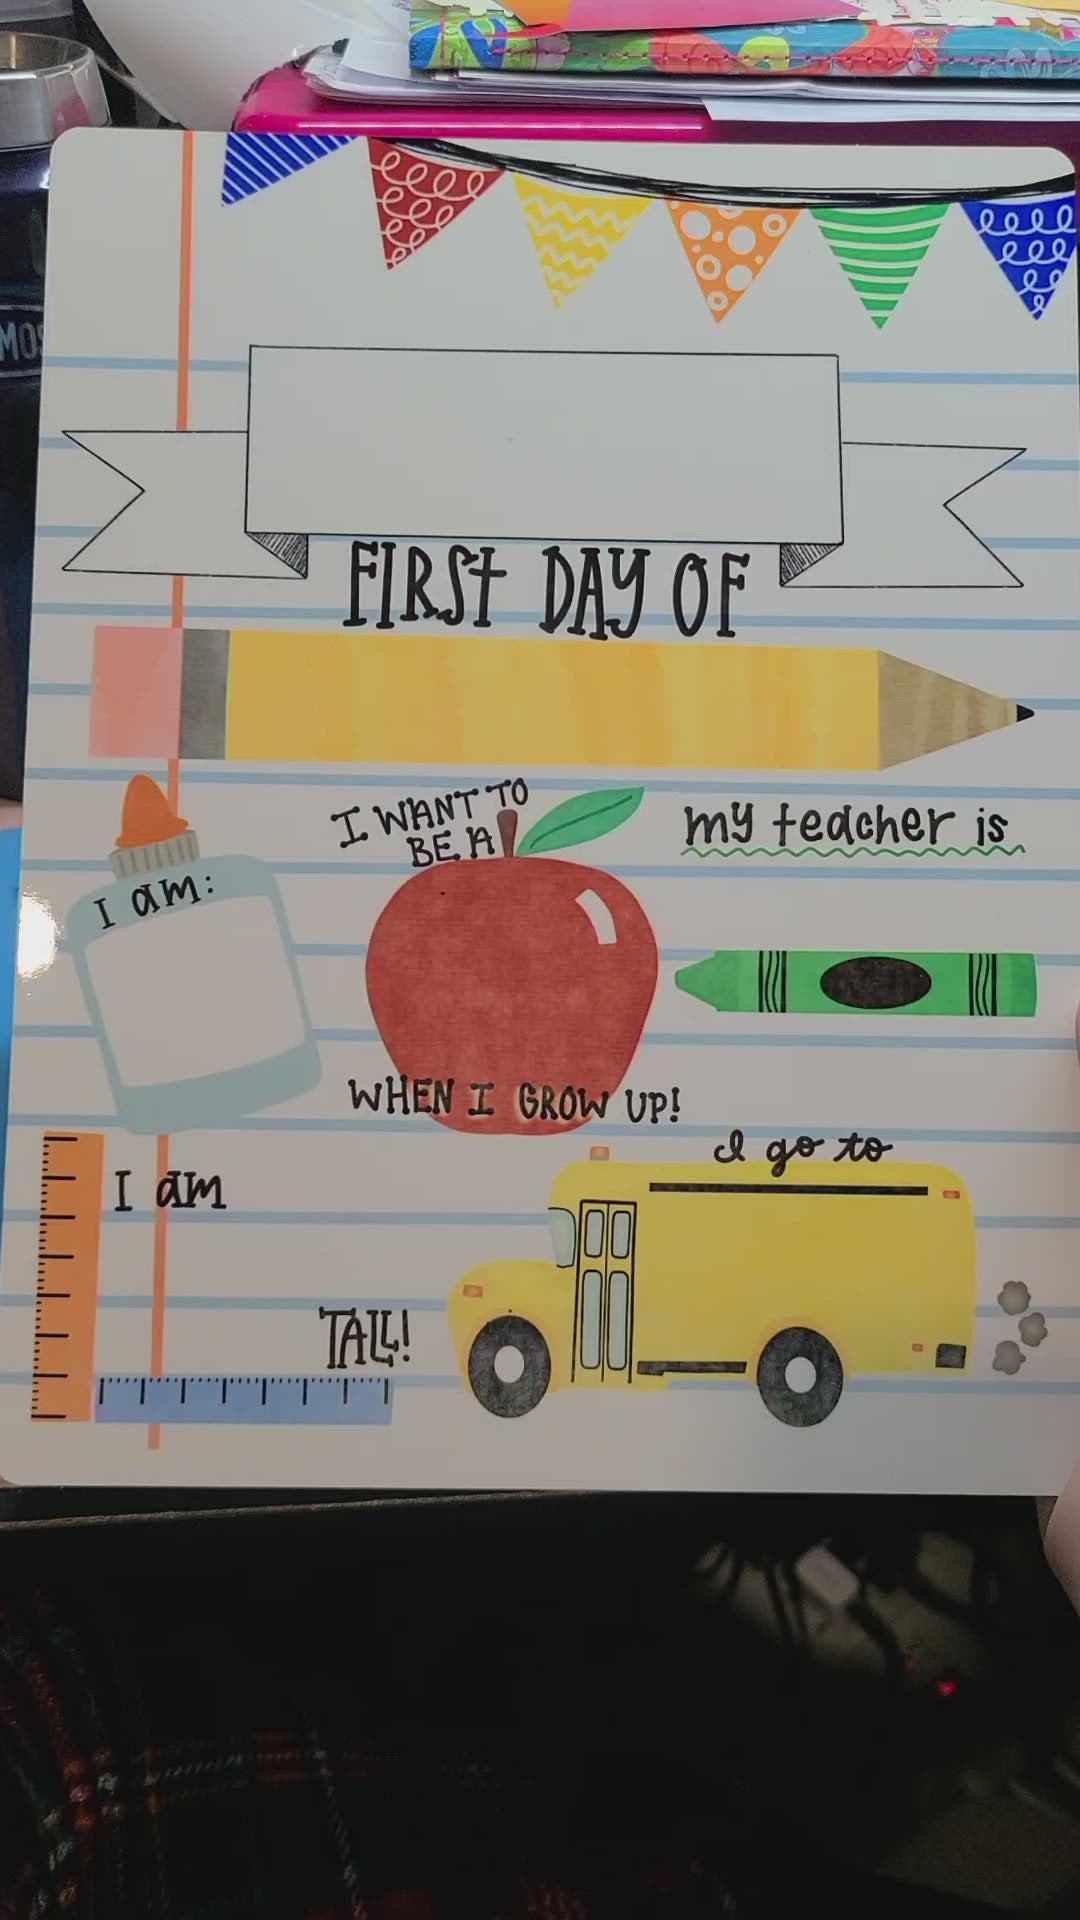 FIRST DAY OF
I WANT TO
BE A
my teacher is
I am:
WHEN I GROW UP!
I go to
I am
TALL!